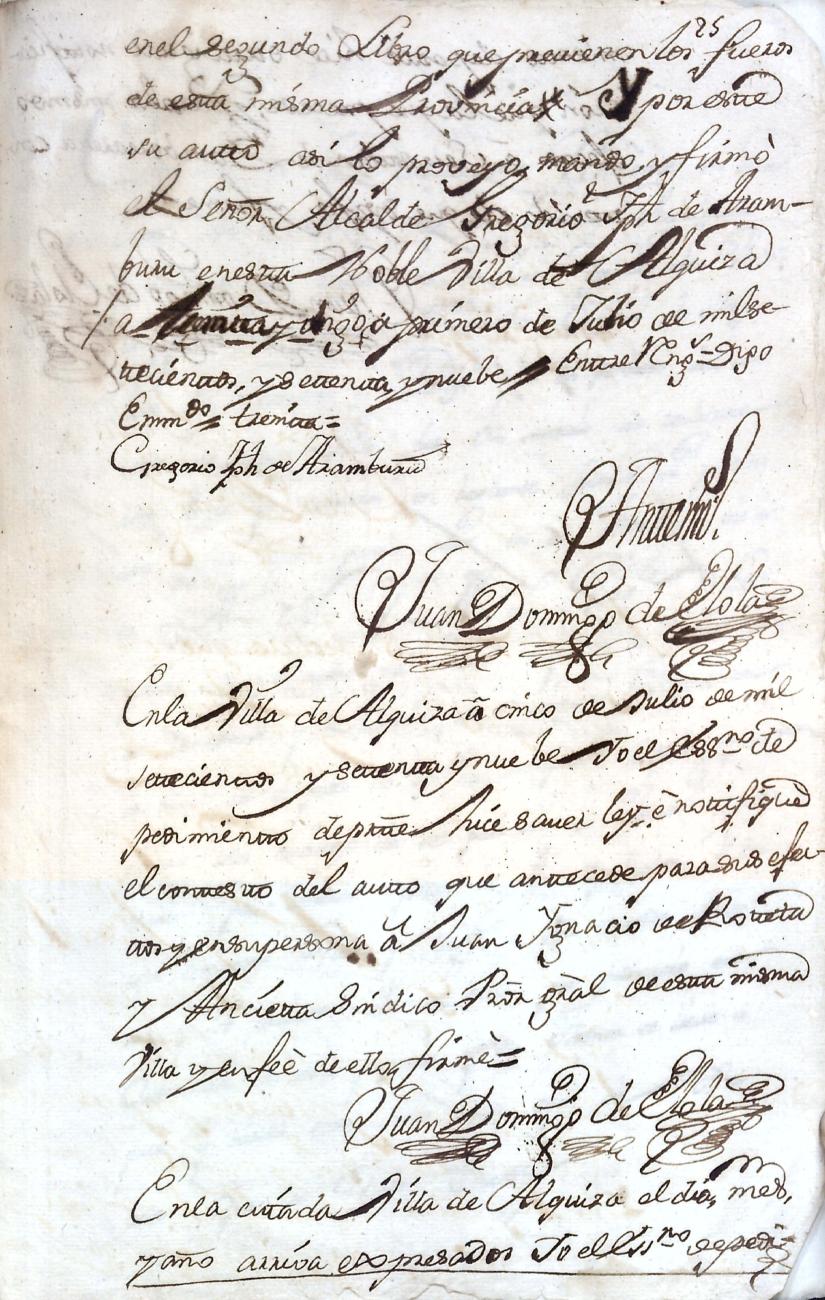 25
enel segundo Libro que previenen los fueros
de esta misma Provincia Y por este
su autto asi lo proveyo, mando, y firmò
el Señor Alcalde Gregorio Jph de Aram-
buru enestta Noble Villa de Alquiza
a primero de Julio de milse-
ttecienttos, y settentta, y nuebe Enttre Rengs = Digo
Emmdo = treintta =
Gregorio Jph de Aramburu
Antemi
Juan Domingo de Elola
Enla Villa de Alquiza â cinco de Julio de mil
settecienttos y settentta y nuebe Yo el Essno de
pedimientto de partte hice saver ley, è nottifiqué
el conttestto del autto que anttecede para sus efec-
ttos y ensupersona â Juan Ygnacio de Rotteta
y Ancietta Sindico Pror gral de estta misma
Villa y en feè de ello, firmè =
Juan Domingo de Elola
Enla cittada Villa de Alquiza el dia, mes,
y año arriva expresados Yo el Essno de pedi-